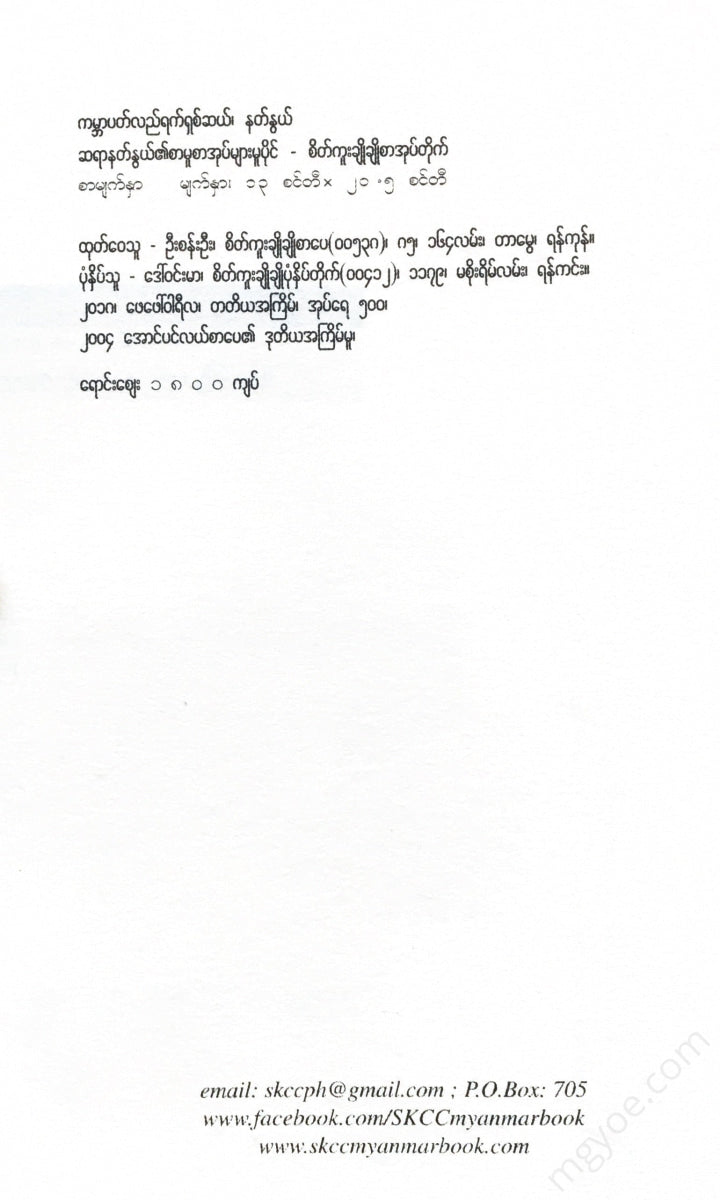 ကမ္ဘာပတ်လည်ရက်ရှစ်ဆယ်၊ နတ်နွယ်
ဆရာနတ်နွယ်၏စာမူစာအုပ်များမူပိုင် - စိတ်ကူးချိုချိုစာအုပ်တိုက်
စာမျက်နှာ မျက်နှား ၁၃ စင်တီ× ၂၁.၅ စင်တီ
ထုတ်ဝေသူ - ဦးစန်းဦး၊ စိတ်ကူးချိုချိုစာပေ(၀၀၅၃၈)၊ ၈၅၊ ၁၆၄လမ်း၊ တာမွေ၊ ရန်ကုန်။
ပုံနှိပ်သူ - ဒေါ်ဝင်းမာ၊ စိတ်ကူးချိုချိုပုံနှိပ်တိုက်(၀၀၄၁၂)၊ ၁၁၇၉၊ မစိုးရိမ်လမ်း၊ ရန်ကင်း။
၂၀၁၈၊ ဖေဖော်ဝါရီလ၊ တတိယအကြိမ်၊ အုပ်ရေ ၅၀၀၊
၂၀၀၄ အောင်ပင်လယ်စာပေ၏ ဒုတိယအကြိမ်မူ၊
ရောင်းဈေး ၁ ၈ ၀ ၀ ကျပ်
email: skccph@gmail.com ; P.O.Box: 705
www.facebook.com/SKCCmyanmarbook
www.skccmyanmarbook.com
mgyoe.com